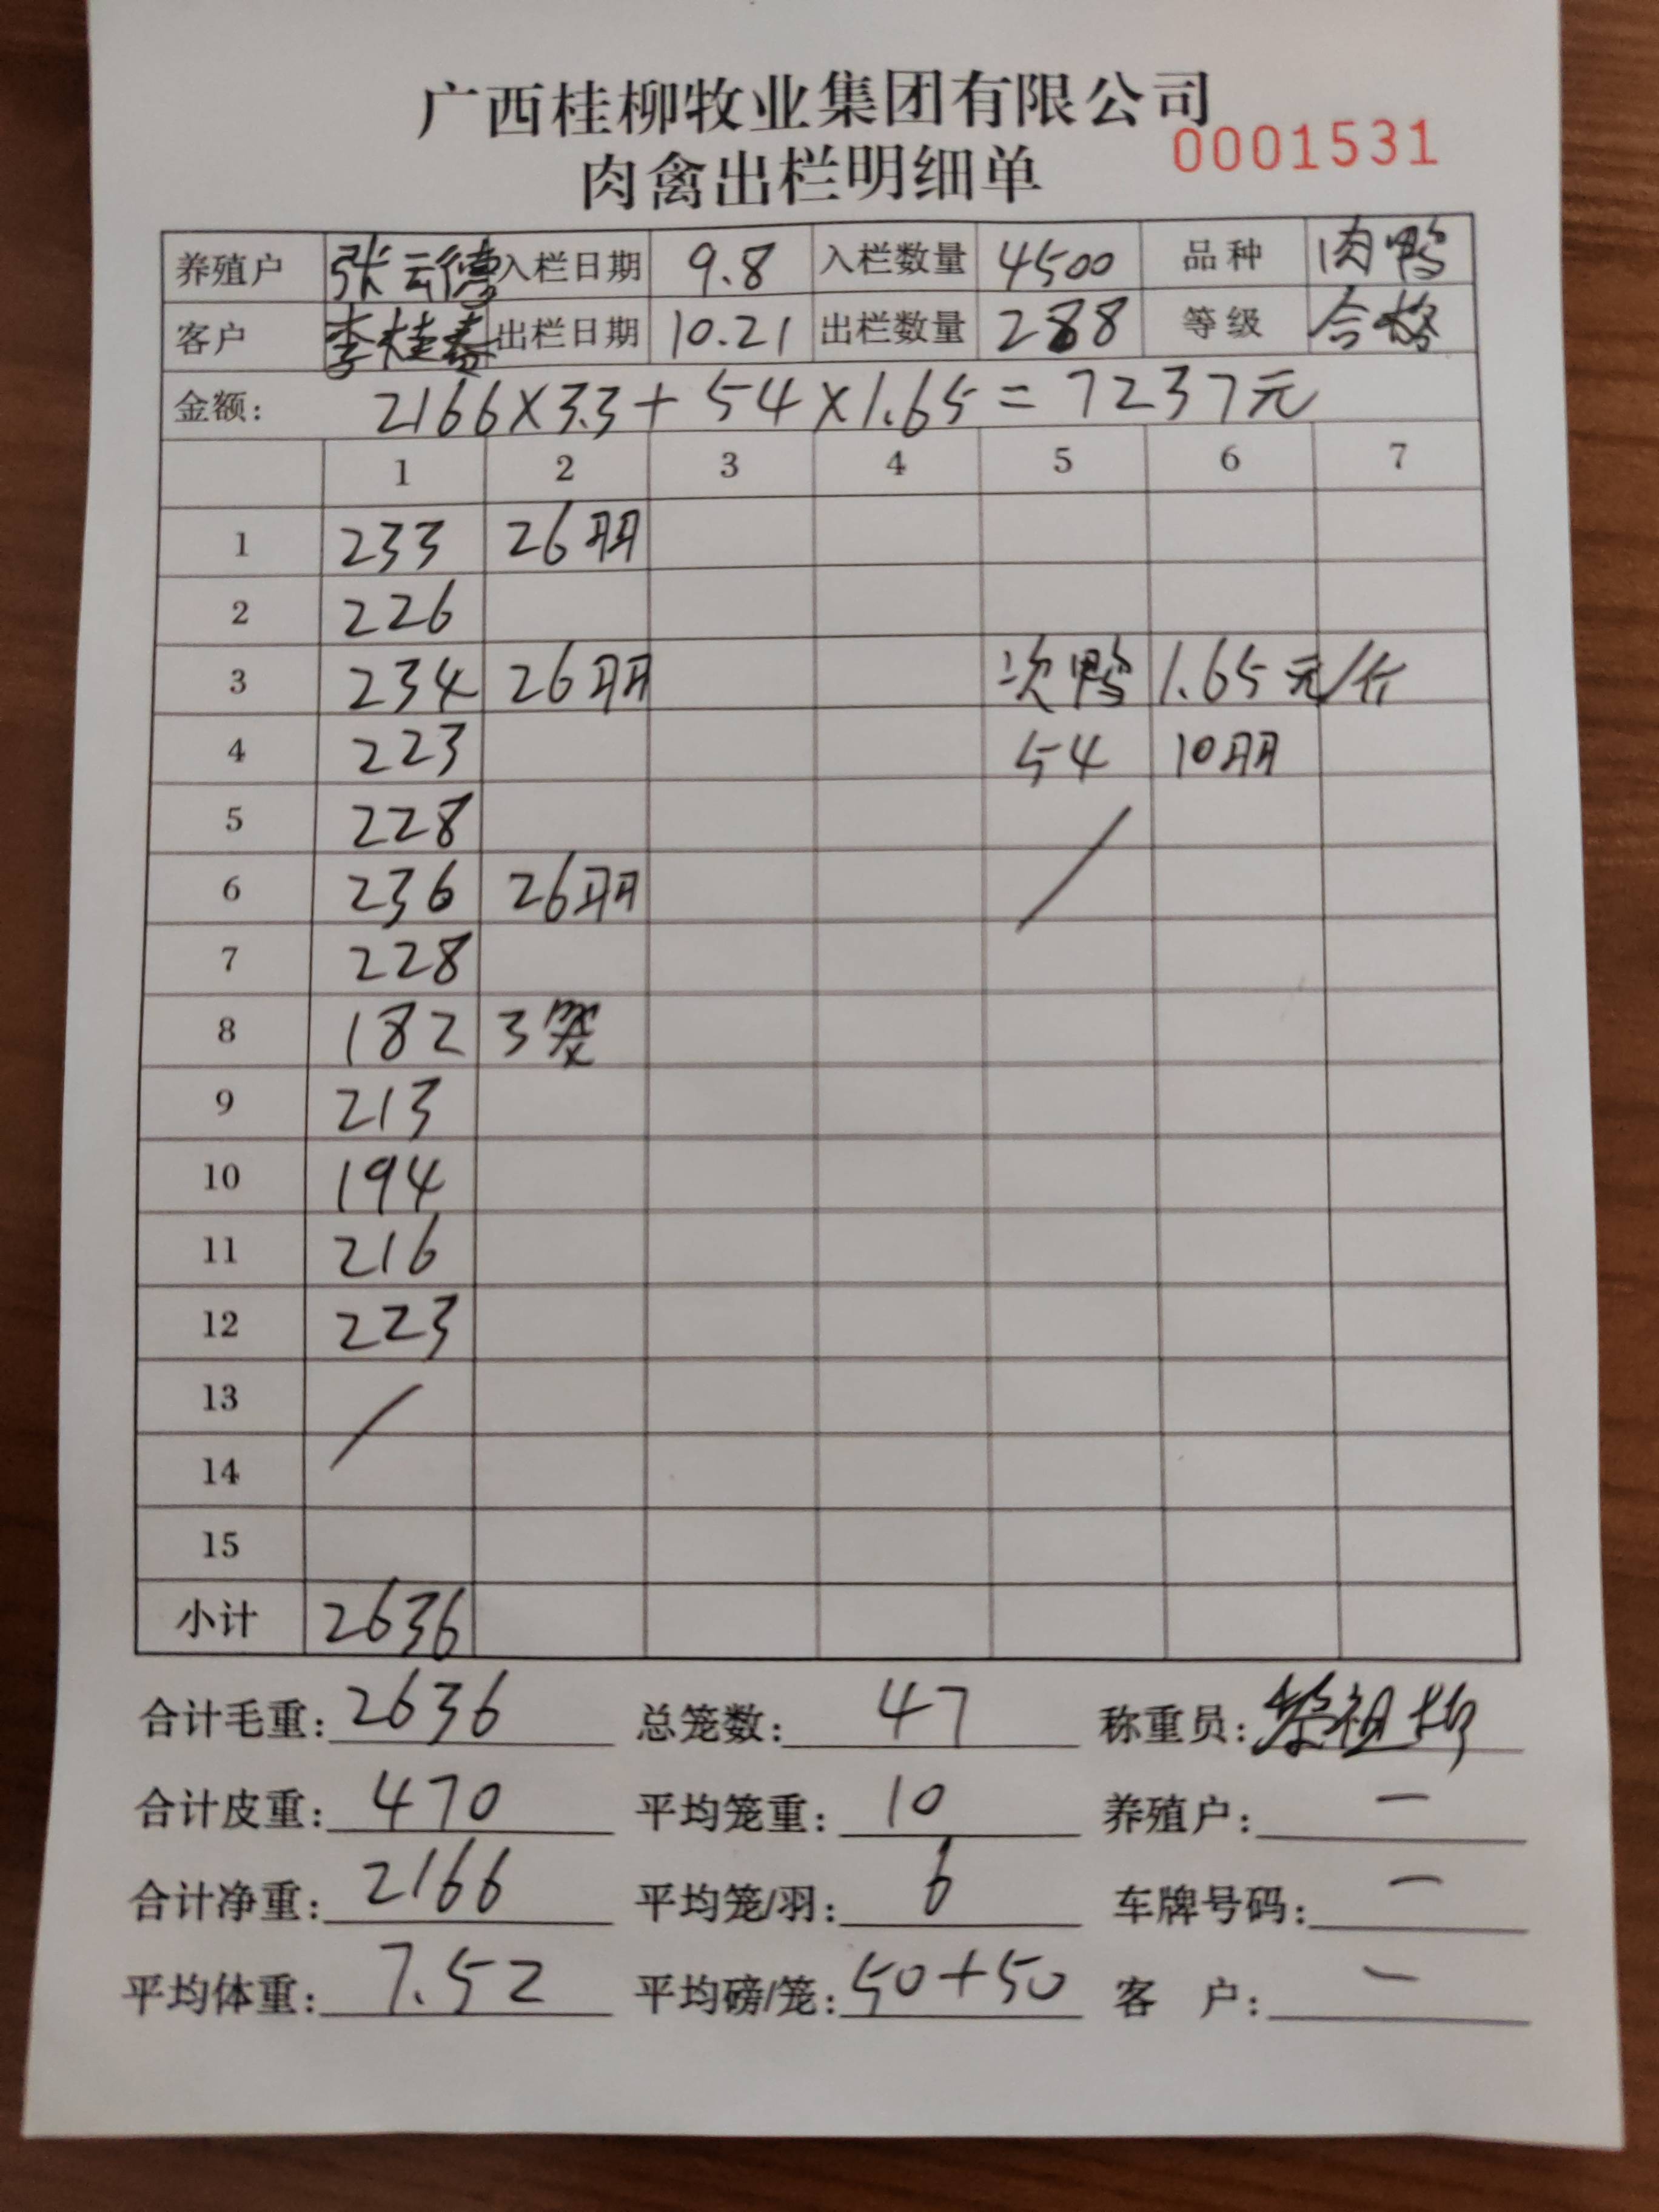 广西桂柳牧业集团有限公司
肉禽出栏明细单 0001531
养殖户 张云德 入栏日期 9.8 入栏数量 4500 品种 肉鸭
客户 李桂春 出栏日期 10.21 出栏数量 288 等级 合格
金额: 2166×3.3+54×1.65=7237元
1 2 3 4 5 6 7
1 233 26羽
2 226
3 234 26羽 次鸭 1.65元/斤
4 223 54 10羽
5 228
6 236 26羽
7 228
8 182 3笼
9 213
10 194
11 216
12 223
13
14
15
小计 2636
合计毛重: 2636 总笼数: 47 称重员:
合计皮重: 470 平均笼重: 10 养殖户: 一
合计净重: 2166 平均笼/羽: 6 车牌号码: 一
平均体重: 7.52 平均磅/笼: 50+50 客 户: 一